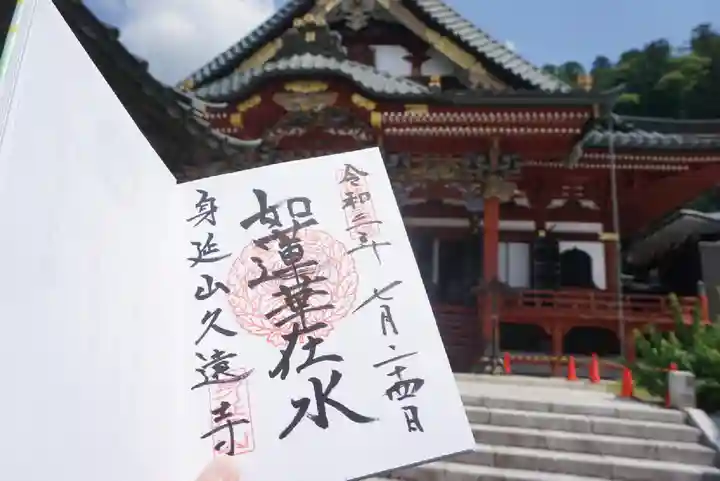 令和二年 七月二十四日
如蓮華在水
身延山久遠寺